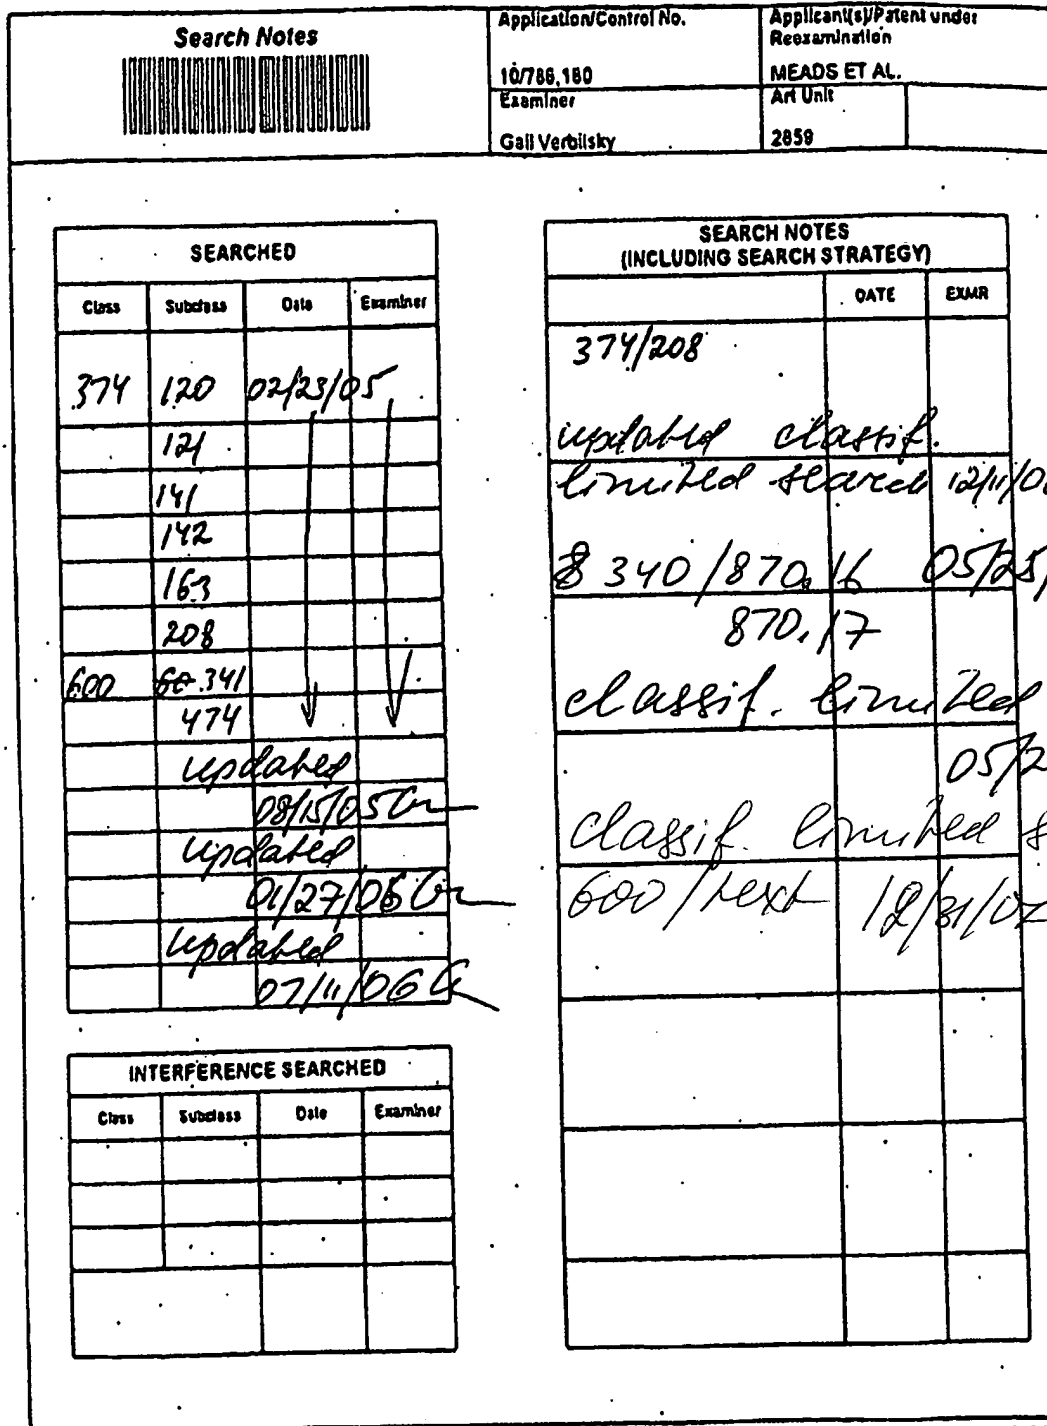 Search Notes
Application/Control No.
10/786,180
Applicant(s)/Patent under
Reexamination
MEADS ET AL.
Examiner
Gail Verbitsky
Art Unit
2859
SEARCHED
Class Subclass Date Examiner
374 120 02/23/05
121
141
142
163
208
600 341
474
updated
08/15/05
updated
01/27/06
updated
07/11/06
INTERFERENCE SEARCHED
Class Subclass Date Examiner
SEARCH NOTES
(INCLUDING SEARCH STRATEGY)
DATE EXMR
374/208
updated classif.
limited search 12/11/0
340/870.16 05/25/
870.17
classif. limited
05/2
classif. limited s
600/text 12/31/07